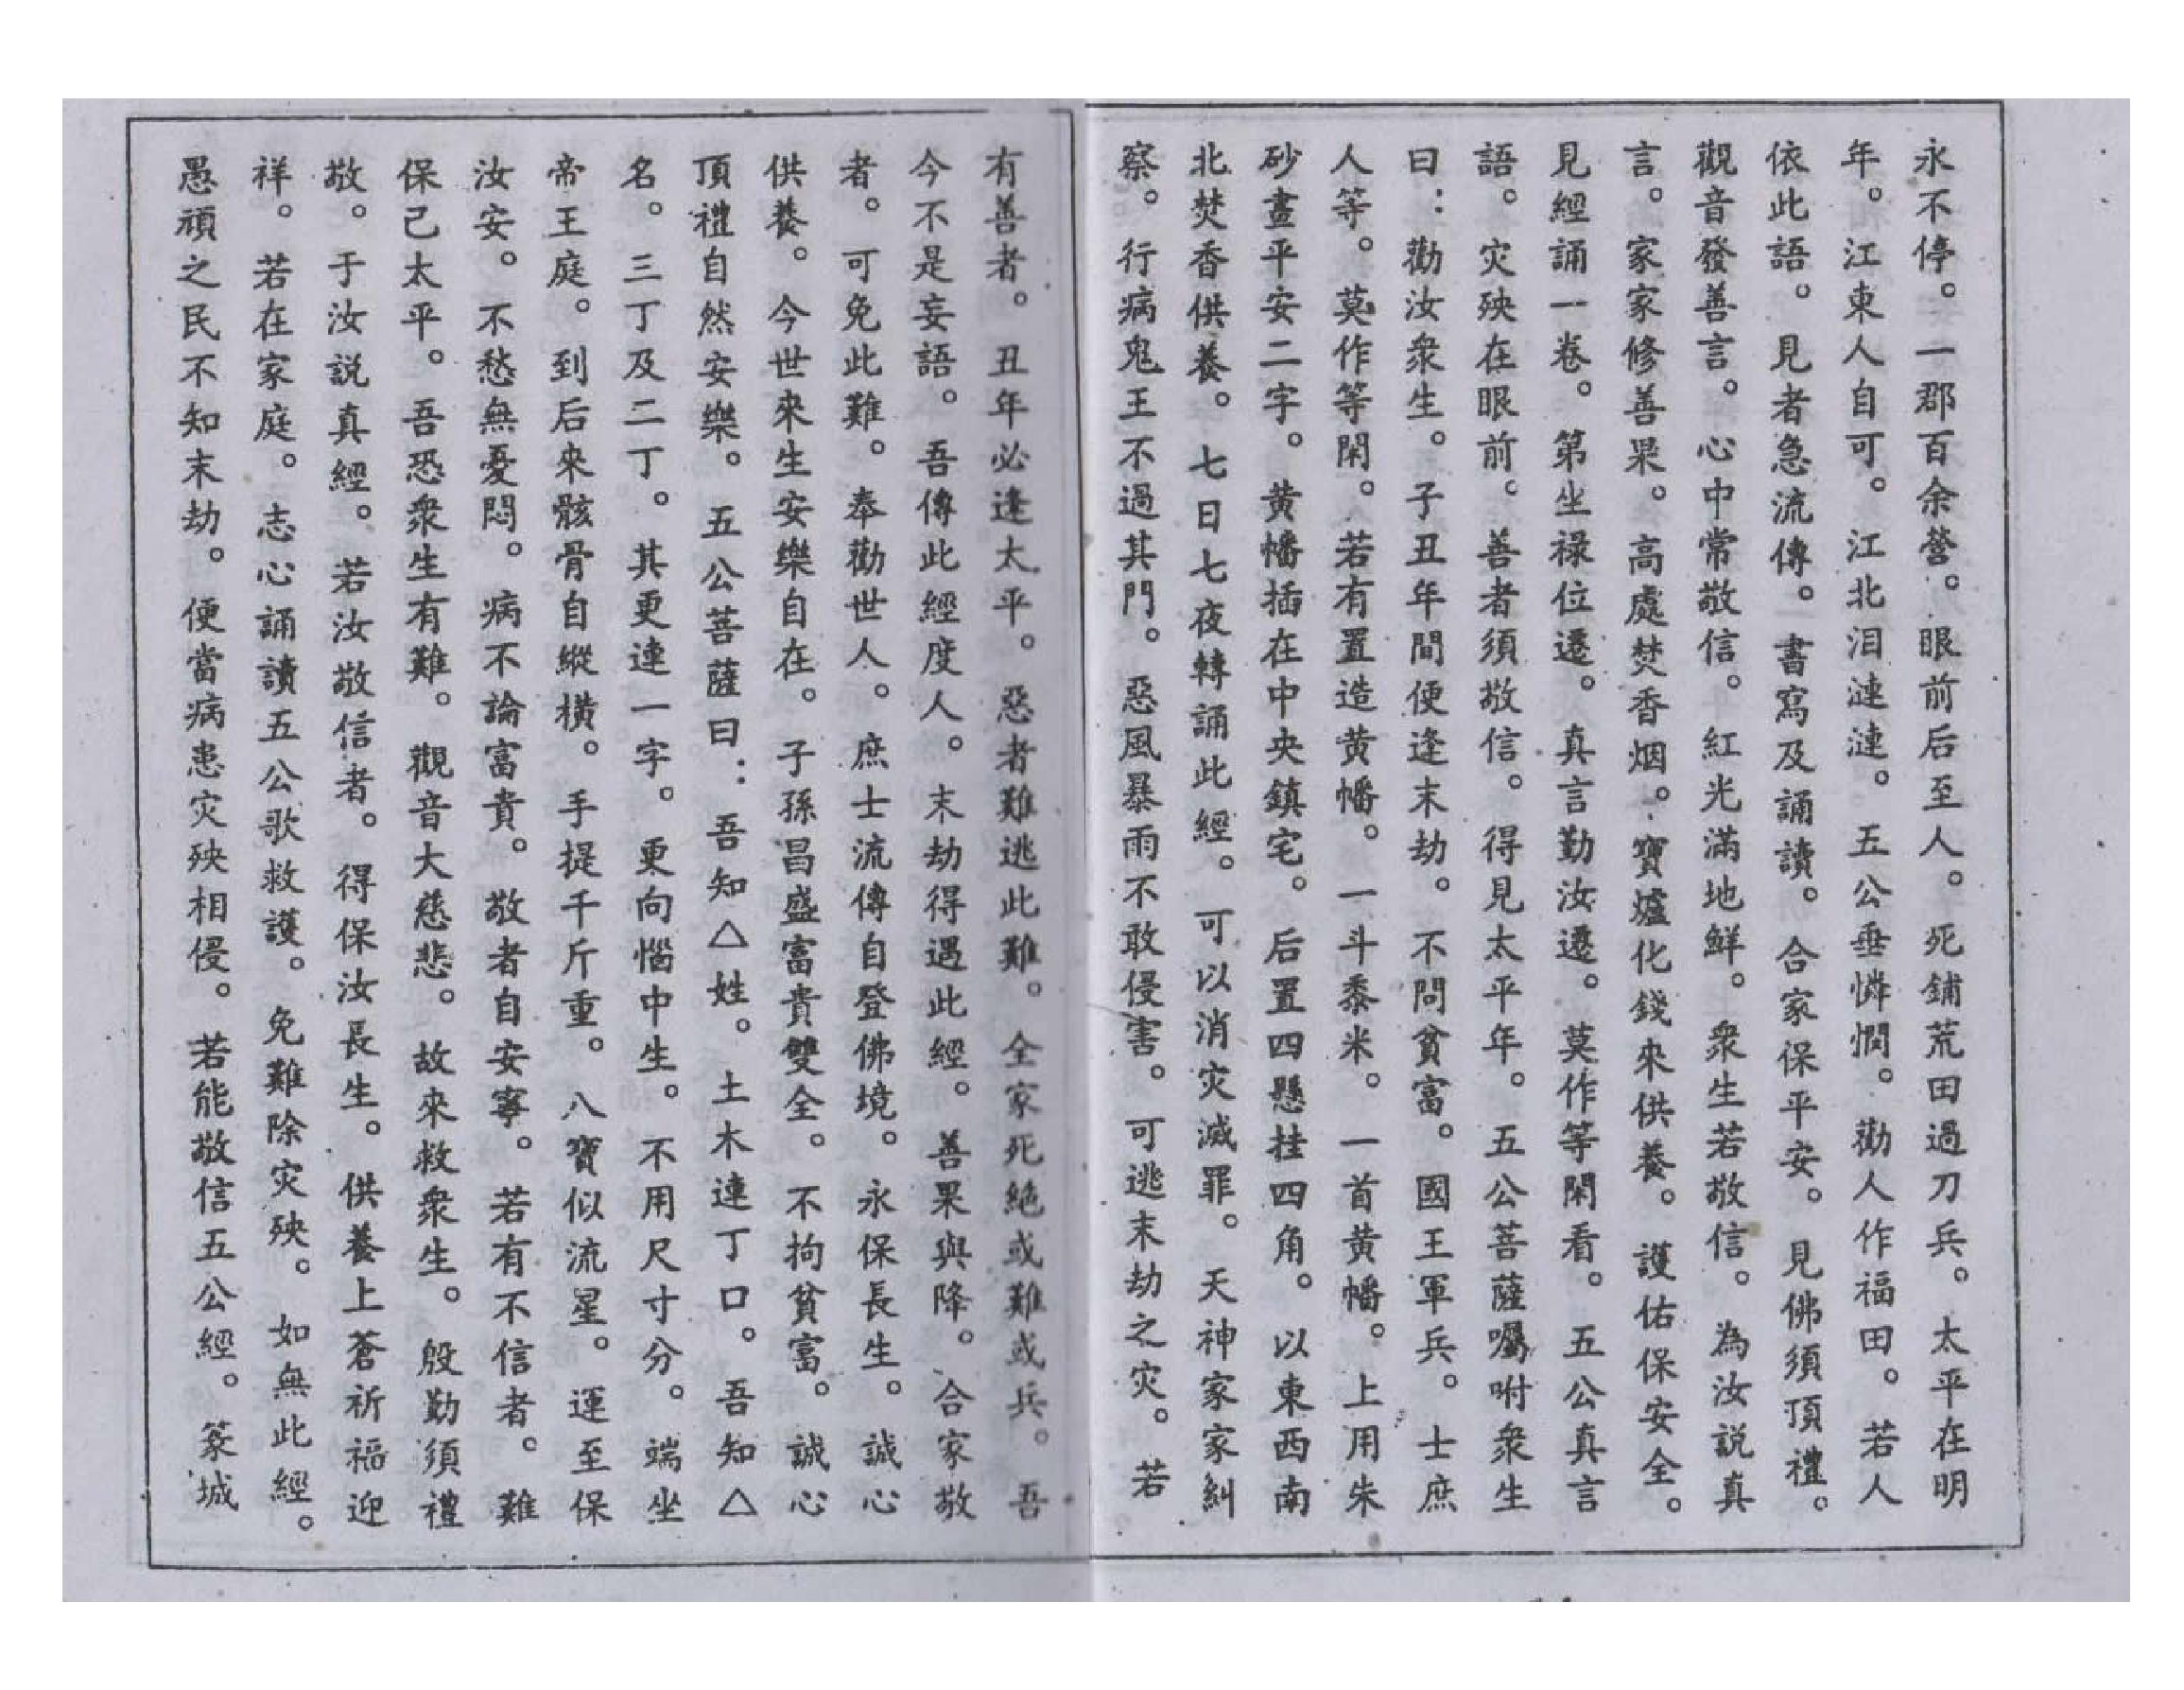 永不停。一郡百余營。眼前后至人。死鋪荒田過刀兵。太平在明
年。江東人自可。江北泪漣漣。五公垂憐憫。勸人作福田。若人
依此語。見者急流傳。書寫及誦讀。合家保平安。見佛須頂禮。
觀音發善言。心中常敬信。紅光滿地鮮。衆生若敬信。為汝説真
言。家家修善果。高處焚香烟。寶爐化錢來供養。護佑保安全。
見經誦一卷。第坐禄位遷。真言勤汝遷。莫作等閑看。五公真言
語。灾殃在眼前。善者須敬信。得見太平年。五公菩薩囑咐衆生
曰：勸汝衆生。子丑年間便逢末劫。不問貧富。國王軍兵。士庶
人等。莫作等閑。若有置造黄幡。一斗黍米。一首黄幡。上用朱
砂畫平安二字。黄幡插在中央鎮宅。后置四懸挂四角。以東西南
北焚香供養。七日七夜轉誦此經。可以消灾滅罪。天神家家糾
察。行病鬼王不過其門。惡風暴雨不敢侵害。可逃末劫之灾。若
有善者。丑年必逢太平。惡者難逃此難。全家死絶或難或兵。吾
今不是妄語。吾傳此經度人。末劫得遇此經。善果與降。合家敬
者。可免此難。奉勸世人。庶士流傳自登佛境。永保長生。誠心
供養。今世來生安樂自在。子孫昌盛富貴雙全。不拘貧富。誠心
頂禮自然安樂。五公菩薩曰：吾知△姓。土木連丁口。吾知△
名。三丁及二丁。其更連一字。更向惱中生。不用尺寸分。端坐
帝王庭。到后來骸骨自縱橫。手提千斤重。八寶似流星。運至保
汝安。不愁無憂悶。病不論富貴。敬者自安寧。若有不信者。難
保己太平。吾恐衆生有難。觀音大慈悲。故來救衆生。殷勤須禮
敬。于汝説真經。若汝敬信者。得保汝長生。供養上蒼祈福迎
祥。若在家庭。志心誦讀五公歌救護。免難除灾殃。如無此經。
愚頑之民不知末劫。便當病患灾殃相侵。若能敬信五公經。篆城